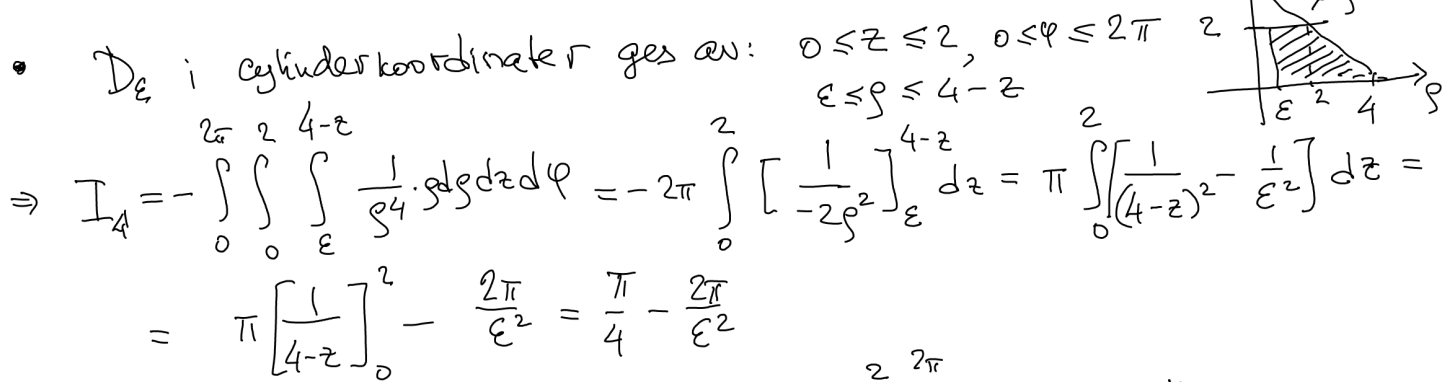 • D_ε i cylinderkoordinater ges av: 0 ≤ z ≤ 2, 0 ≤ φ ≤ 2π
ε ≤ ρ ≤ 4 - z
2
ε 2 4 ρ
⇒ I_4 = - ∫_0^{2π} ∫_0^2 ∫_ε^{4-z} 1/ρ^4 · ρdρdzdφ = -2π ∫_0^2 [1/(-2ρ^2)]_ε^{4-z} dz = π ∫_0^2 [1/(4-z)^2 - 1/ε^2] dz =
= π [1/(4-z)]_0^2 - 2π/ε^2 = π/4 - 2π/ε^2
2 2π